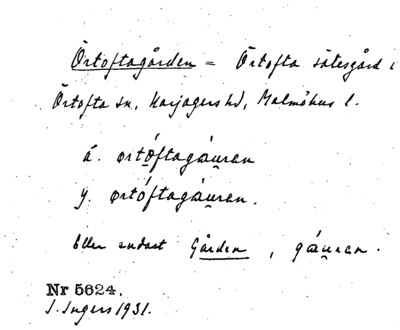 Örtoftagården = Örtofta sätesgård i
Örtofta sn, Harjagers hd, Malmöhus l.
ä. ørtóftagáu̯ren
y. ørtóftagáu̯ren.
Eller endast Gården, gáu̯ren.
Nr 5624.
I. Ingers 1931.